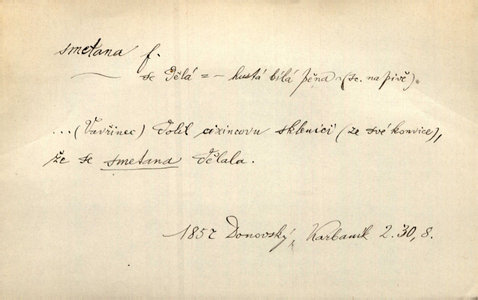 smetana f.
se dělá = – hustá bílá pěna (sc. na pivě).
...(Vavřinec) dolil cizincovu sklenici (ze své konvice),
že se smetana dělala.
1857 Donovský, Karbaník 2.30, 8.